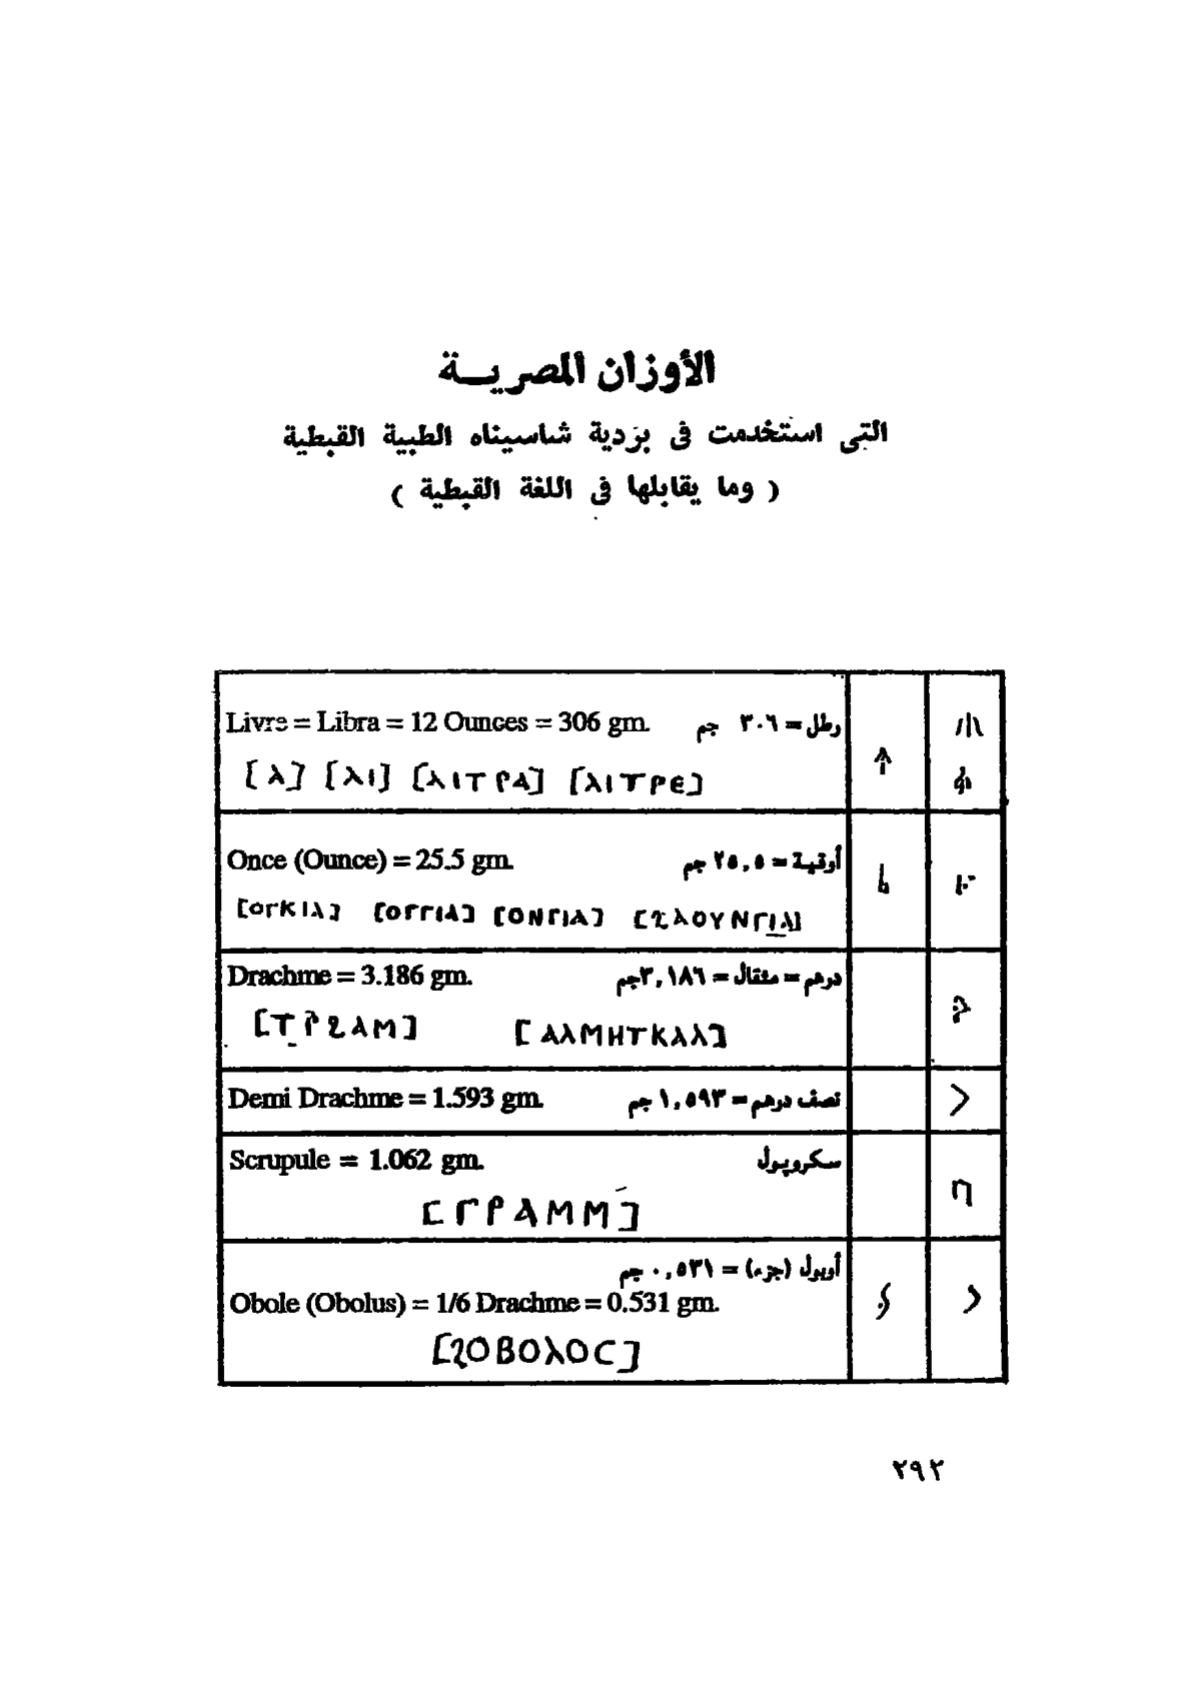 الأوزان المصريـــة
التى استخدمت فى بردية شاسيناه الطبية القبطية
( وما يقابلها فى اللغة القبطية )
Livre = Libra = 12 Ounces = 306 gm. رطل = ٣٠٦ جم
[ⲗ] [ⲗⲓ] [ⲗⲓⲧⲣⲁ] [ⲗⲓⲧⲣⲉ]
Once (Ounce) = 25.5 gm. أوقية = ٢٥,٥ جم
[ⲟⲅⲕⲓⲁ] [ⲟⲅⲅⲓⲁ] [ⲟⲛⲅⲓⲁ]
Drachme = 3.186 gm. درهم = مثقال = ٣,١٨٦جم
[ⲁⲗⲙⲏⲧⲕⲁⲗ]
Demi Drachme = 1.593 gm. نصف درهم = ١,٥٩٣ جم
Scrupule = 1.062 gm. سكروپول
[ⲅⲣⲁⲙⲙ]
أوبول (جزء) = ٠,٥٣١ جم
Obole (Obolus) = 1/6 Drachme = 0.531 gm.
[ϩⲟⲃⲟⲗⲟⲥ]
٢٩٢